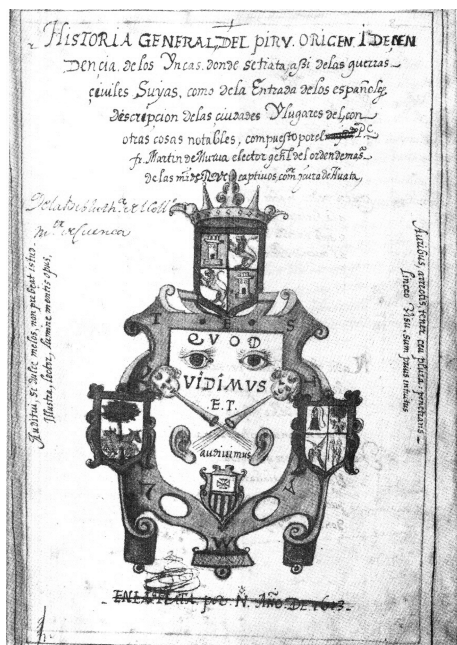 HISTORIA GENERAL, DEL PIRV. ORIGEN. I DECEN
DENCIA. de los Yncas. donde se trata, aßi de las guerras
civiles Suyas, como de la Entrada de los españoles,
descripcion de las ciudades Y lugares del, con
otras cosas notables, compuesto por el P.C.
fr. Martin de Murua elector genl. del orden de nra
de las mrd. captivos, y cura de Huata,
De la
mr de Cuenca
Auditui, si dulce melos, non prebeat istud.
Illustra, lector, lumine mentis opus,
Auribus, arrectis, tener ceu pluia. penetrans
sincero Visu. sum prius intuitus
T. E. S
QVOD
VIDIMVS
E.T.
audiuimus
EN LA PLATA. por. N. AÑO. DE 1613.